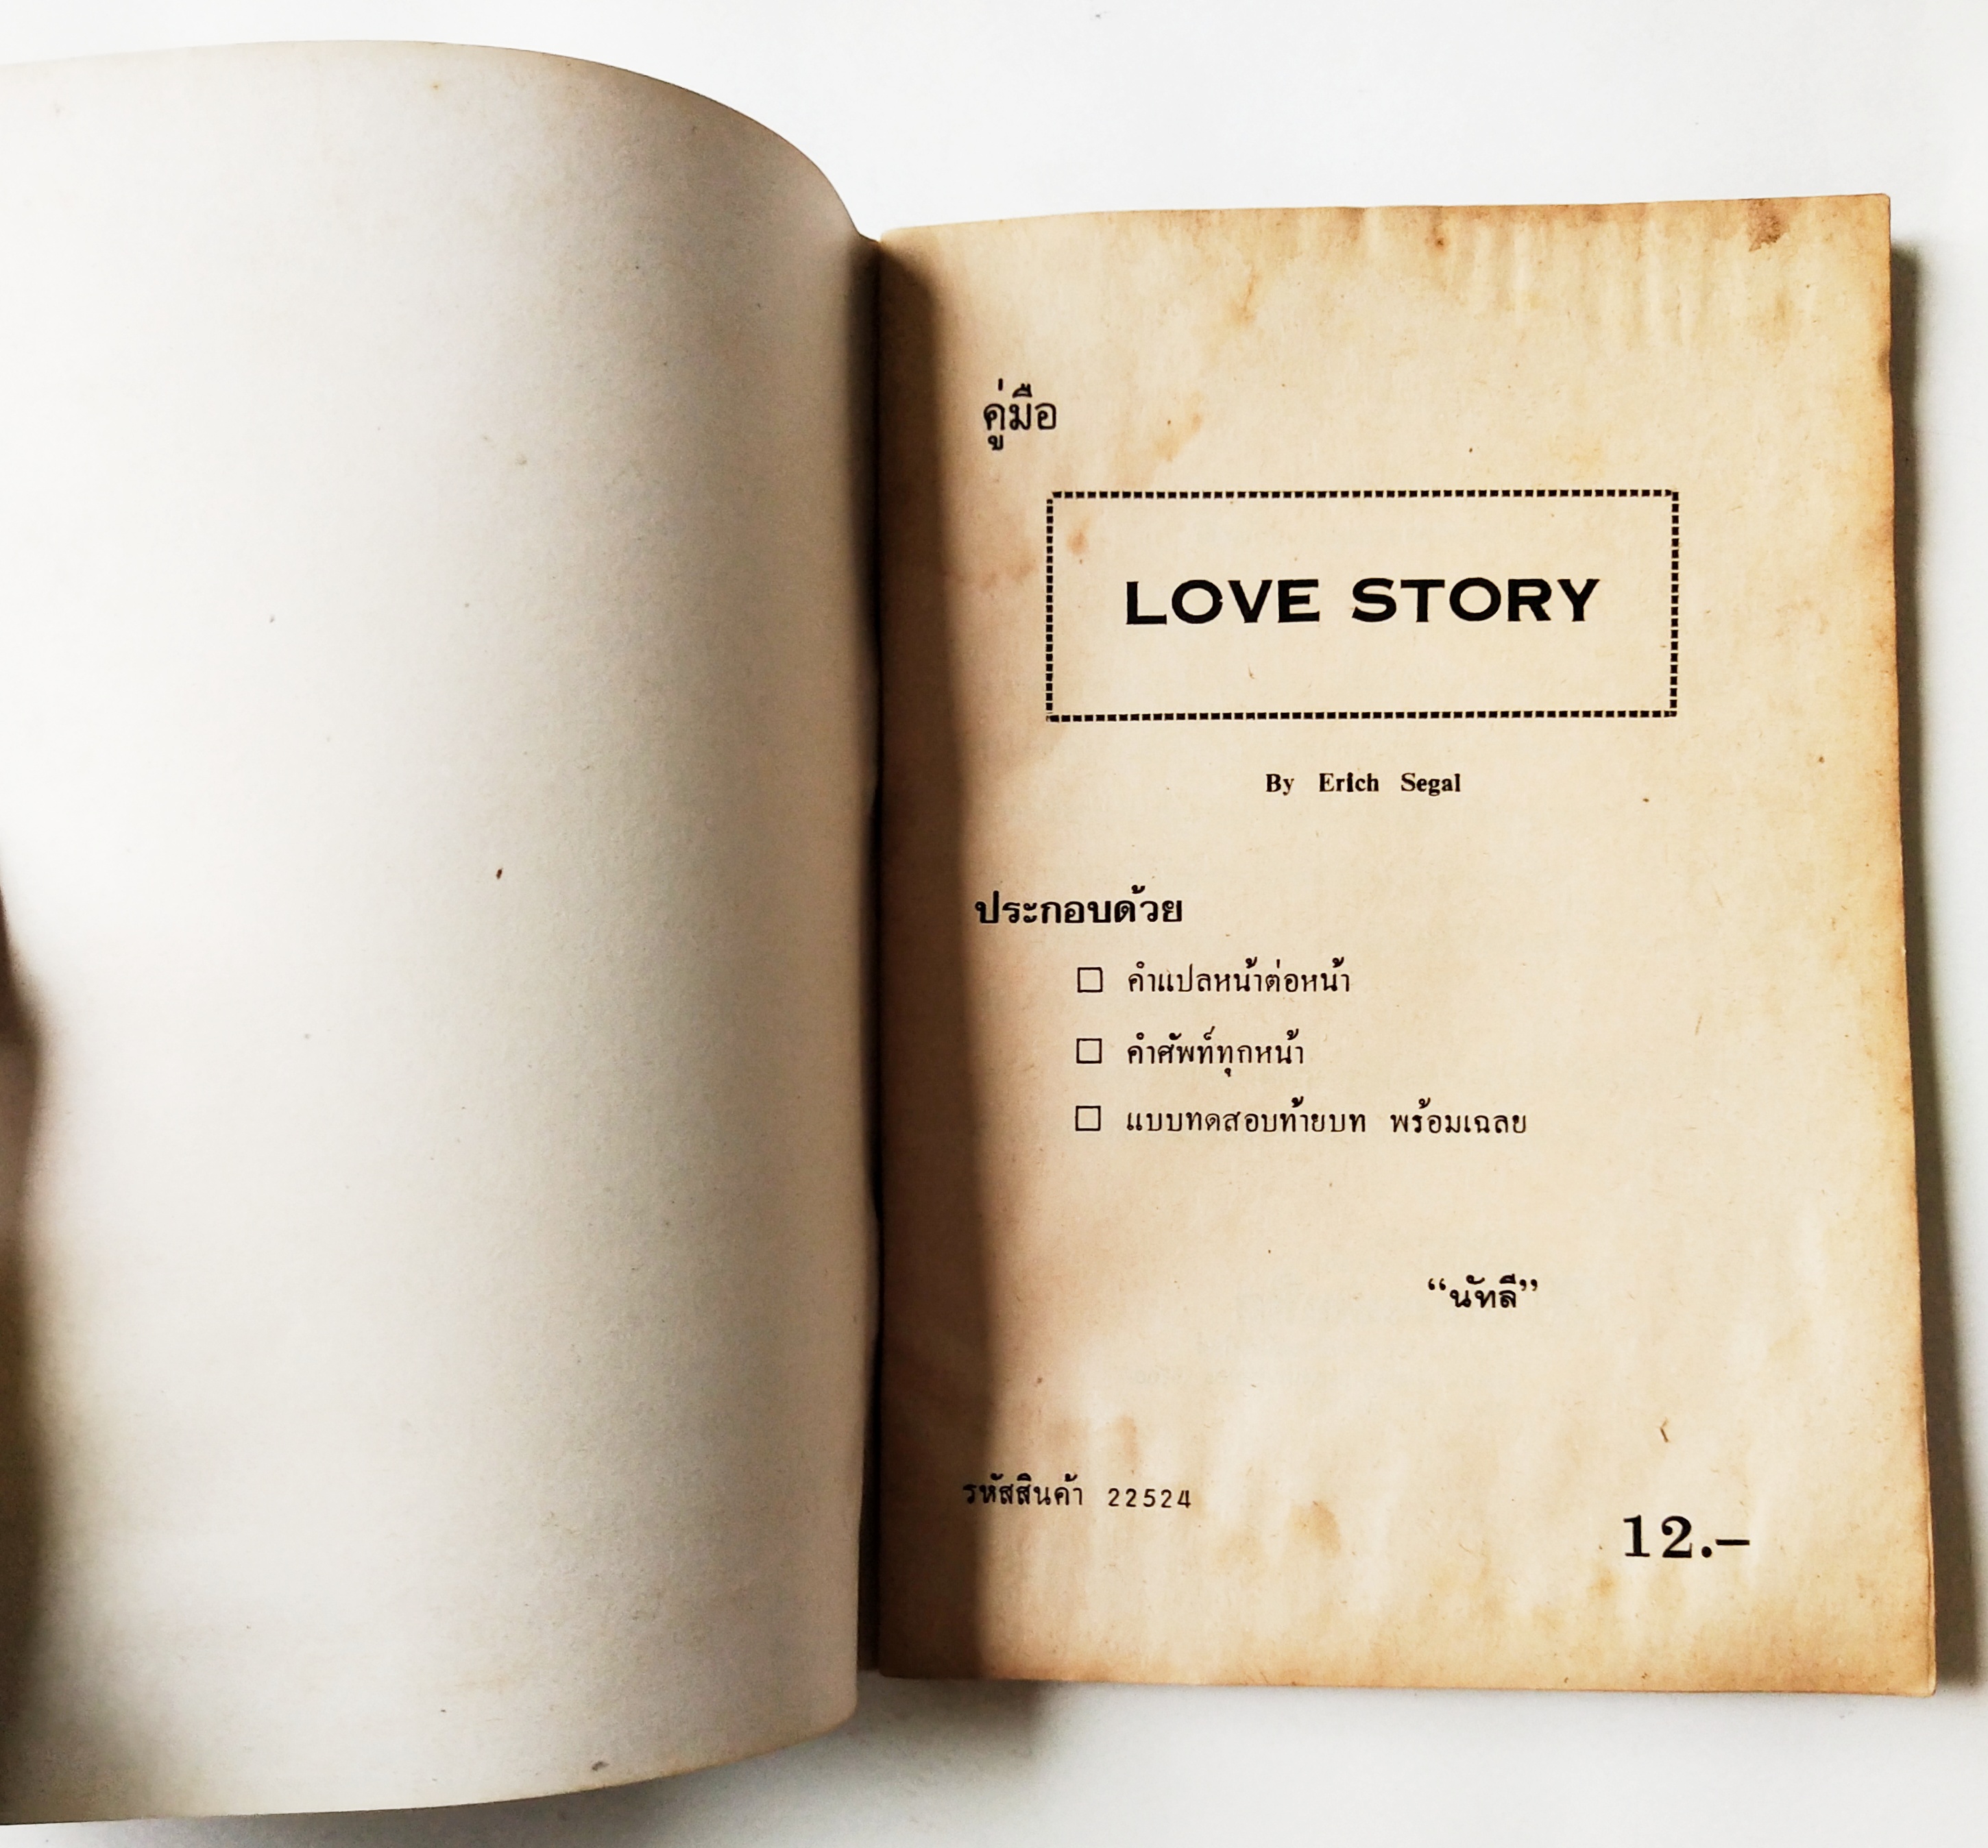 คู่มือ
LOVE STORY
By Erich Segal
ประกอบด้วย
☐ คำแปลหน้าต่อหน้า
☐ คำศัพท์ทุกหน้า
☐ แบบทดสอบท้ายบท พร้อมเฉลย
“นัทลี”
รหัสสินค้า 22524
12.–